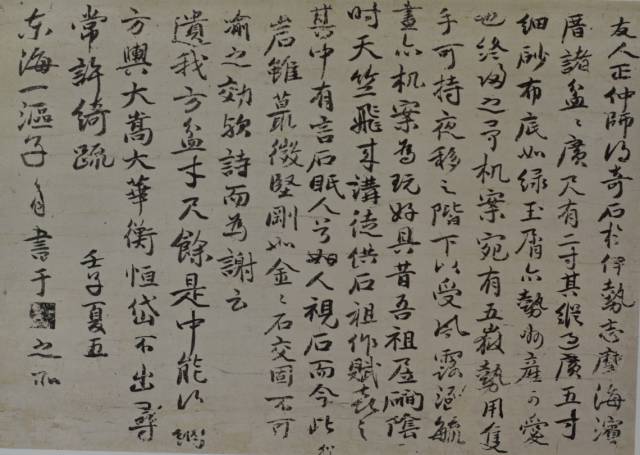 友人正仲師得奇石於伊勢志摩海濱
厝諸盆盆廣尺有二寸其縱則廣五寸
細砂布底如緑玉屑亦勢州産可愛
也終歸之予机案宛有五嶽勢用隻
手可持夜移之階下以受風露
晝亦机案為玩好具昔吾祖居
時天竺飛來講徒供石祖作賦
其中有言石眠人兮如人視石而今此
岩雖蕞微堅剛如金金石交固不可
渝之效欤詩而為謝云
遺我方盆才尺餘是中能
方輿大嵩大華衡恒岱不出尋
常許綺疏
壬子夏五
東海一漚子自書于之所